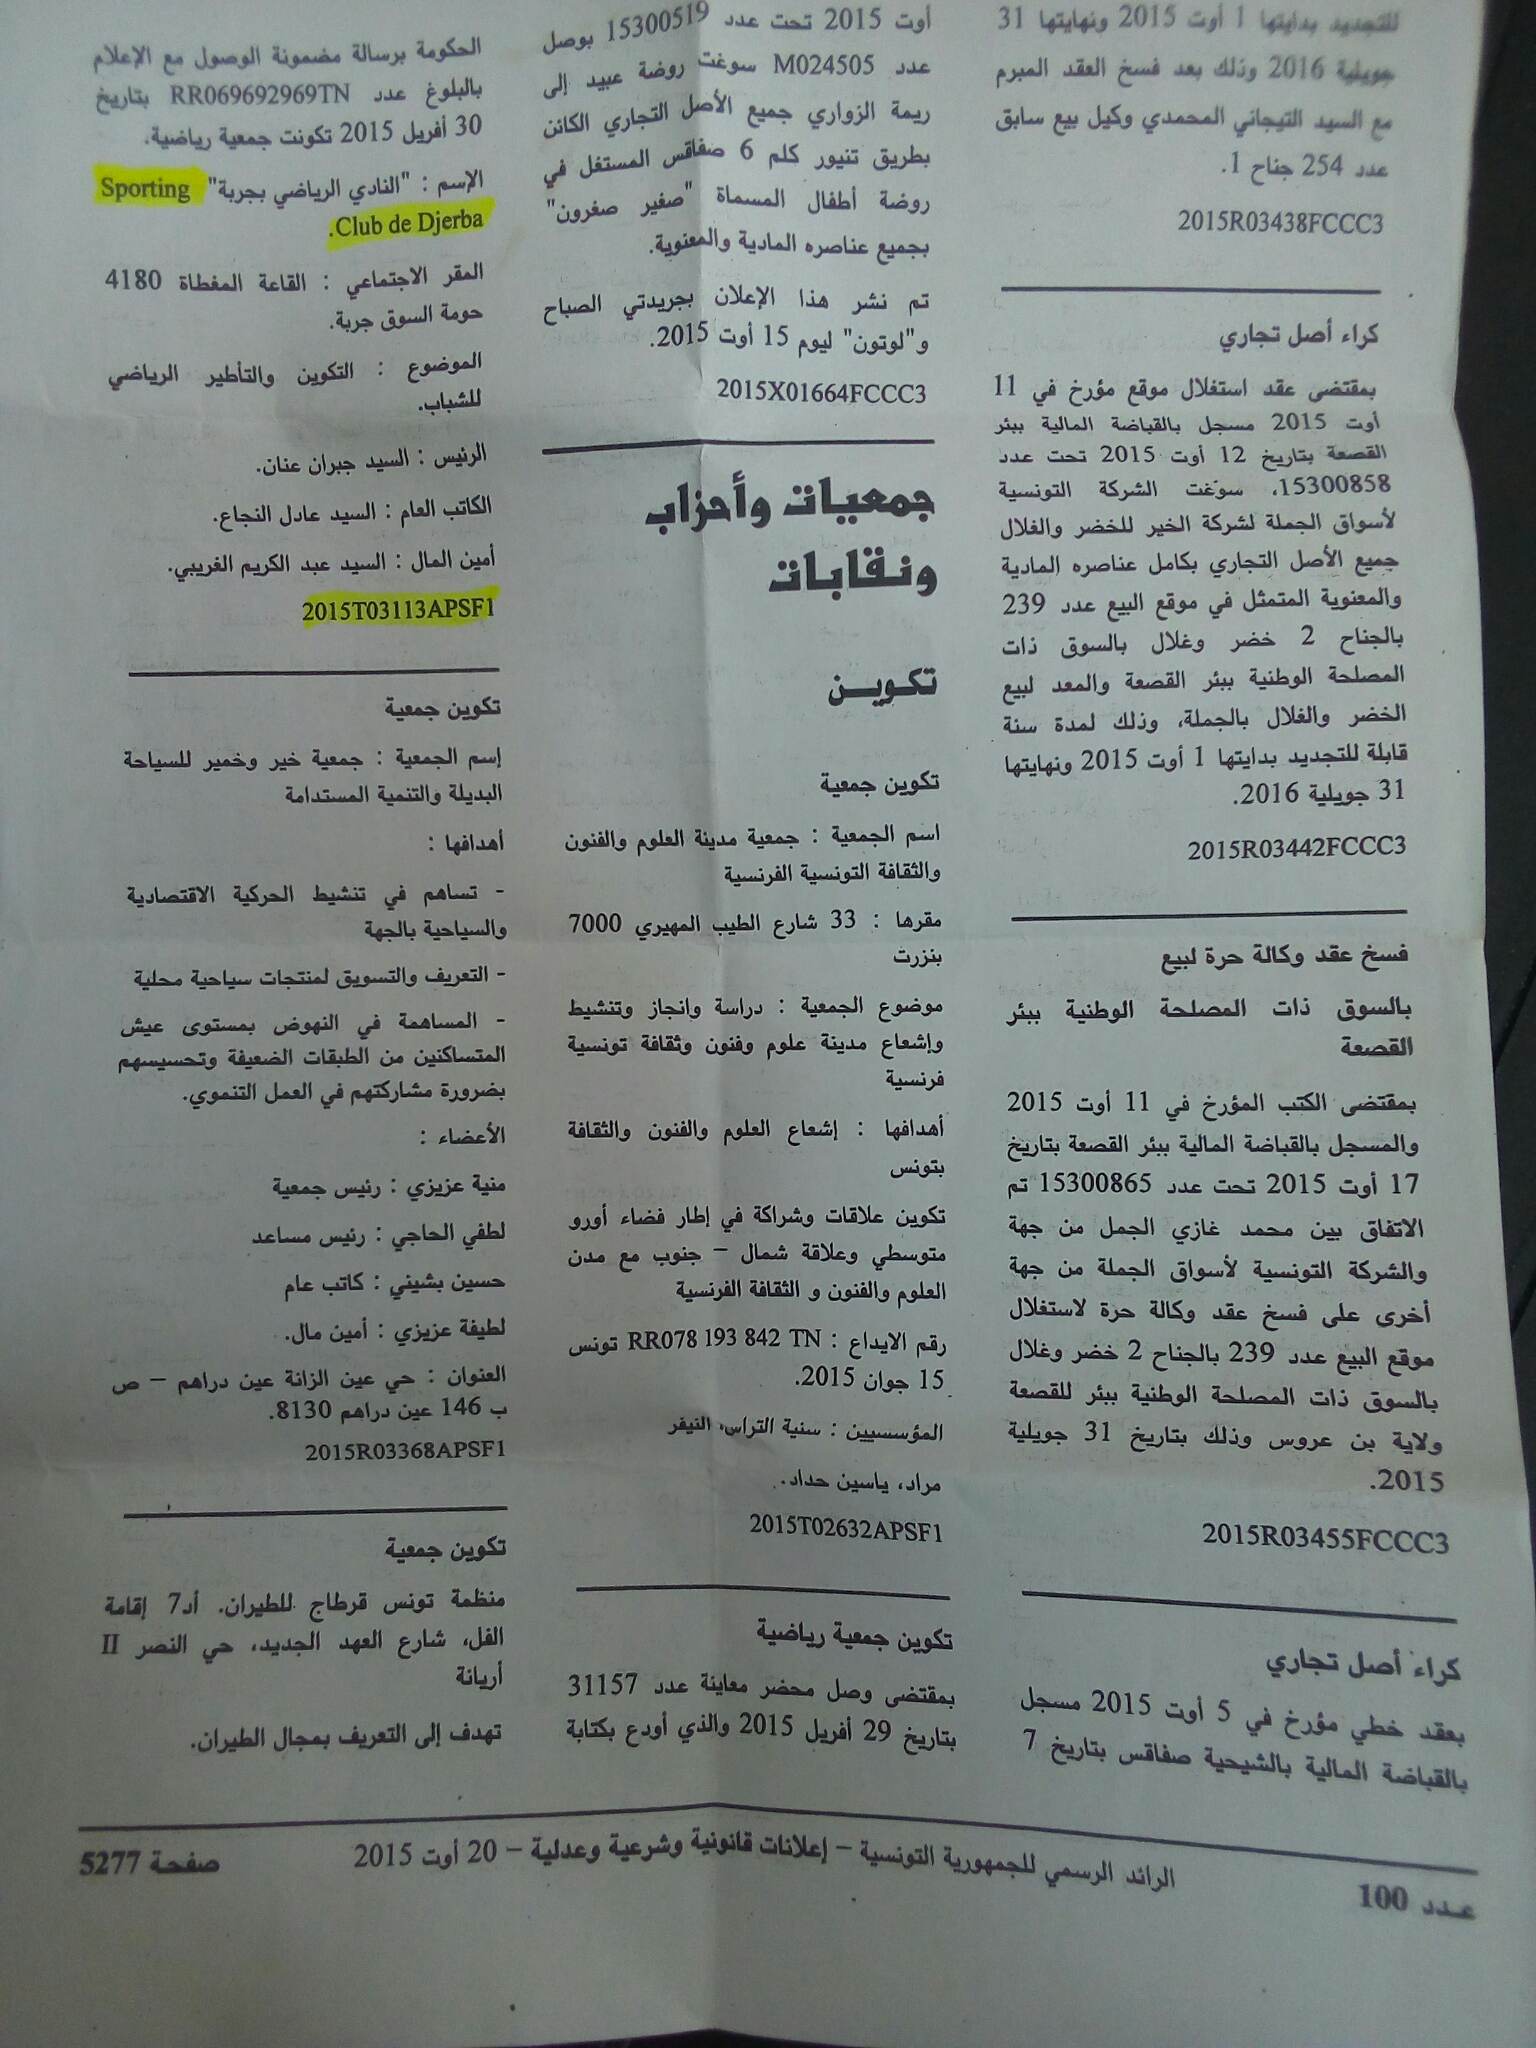 للتجديد بدايتها 1 أوت 2015 ونهايتها 31
جويلية 2016 وذلك بعد فسخ العقد المبرم
مع السيد التيجاني المحمدي وكيل بيع سابق
عدد 254 جناح 1.
2015R03438FCCC3
كراء أصل تجاري
بمقتضى عقد استغلال موقع مؤرخ في 11
أوت 2015 مسجل بالقباضة المالية ببئر
القصعة بتاريخ 12 أوت 2015 تحت عدد
15300858، سوّغت الشركة التونسية
لأسواق الجملة لشركة الخير للخضر والغلال
جميع الأصل التجاري بكامل عناصره المادية
والمعنوية المتمثل في موقع البيع عدد 239
بالجناح 2 خضر وغلال بالسوق ذات
المصلحة الوطنية ببئر القصعة والمعد لبيع
الخضر والغلال بالجملة، وذلك لمدة سنة
قابلة للتجديد بدايتها 1 أوت 2015 ونهايتها
31 جويلية 2016.
2015R03442FCCC3
فسخ عقد وكالة حرة لبيع
بالسوق ذات المصلحة الوطنية ببئر
القصعة
بمقتضى الكتب المؤرخ في 11 أوت 2015
والمسجل بالقباضة المالية ببئر القصعة بتاريخ
17 أوت 2015 تحت عدد 15300865 تم
الاتفاق بين محمد غازي الجمل من جهة
والشركة التونسية لأسواق الجملة من جهة
أخرى على فسخ عقد وكالة حرة لاستغلال
موقع البيع عدد 239 بالجناح 2 خضر وغلال
بالسوق ذات المصلحة الوطنية ببئر للقصعة
ولاية بن عروس وذلك بتاريخ 31 جويلية
2015.
2015R03455FCCC3
كراء أصل تجاري
بعقد خطي مؤرخ في 5 أوت 2015 مسجل
بالقباضة المالية بالشيحية صفاقس بتاريخ 7
أوت 2015 تحت عدد 15300519 بوصل
عدد M024505 سوغت روضة عبيد إلى
ريمة الزواري جميع الأصل التجاري الكائن
بطريق تنيور كلم 6 صفاقس المستغل في
روضة أطفال المسماة "صغير صغرون"
بجميع عناصره المادية والمعنوية.
تم نشر هذا الإعلان بجريدتي الصباح
و"لوتون" ليوم 15 أوت 2015.
2015X01664FCCC3
جمعيات وأحزاب
ونقابات
تكويـن
تكوين جمعية
اسم الجمعية : جمعية مدينة العلوم والفنون
والثقافة التونسية الفرنسية
مقرها : 33 شارع الطيب المهيري 7000
بنزرت
موضوع الجمعية : دراسة وانجاز وتنشيط
وإشعاع مدينة علوم وفنون وثقافة تونسية
فرنسية
أهدافها : إشعاع العلوم والفنون والثقافة
بتونس
تكوين علاقات وشراكة في إطار فضاء أورو
متوسطي وعلاقة شمال – جنوب مع مدن
العلوم والفنون و الثقافة الفرنسية
رقم الايداع : RR078 193 842 TN تونس
15 جوان 2015.
المؤسسيين : سنية التراس، النيفر
مراد، ياسين حداد.
2015T02632APSF1
تكوين جمعية رياضية
بمقتضى وصل محضر معاينة عدد 31157
بتاريخ 29 أفريل 2015 والذي أودع بكتابة
الحكومة برسالة مضمونة الوصول مع الإعلام
بالبلوغ عدد RR069692969TN بتاريخ
30 أفريل 2015 تكونت جمعية رياضية.
الإسم : "النادي الرياضي بجربة" Sporting
Club de Djerba.
المقر الاجتماعي : القاعة المغطاة 4180
حومة السوق جربة.
الموضوع : التكوين والتأطير الرياضي
للشباب.
الرئيس : السيد جبران عنان.
الكاتب العام : السيد عادل النجاع.
أمين المال : السيد عبد الكريم الغريبي.
2015T03113APSF1
تكوين جمعية
إسم الجمعية : جمعية خير وخمير للسياحة
البديلة والتنمية المستدامة
أهدافها :
- تساهم في تنشيط الحركية الاقتصادية
والسياحية بالجهة
- التعريف والتسويق لمنتجات سياحية محلية
- المساهمة في النهوض بمستوى عيش
المتساكنين من الطبقات الضعيفة وتحسيسهم
بضرورة مشاركتهم في العمل التنموي.
الأعضاء :
منية عزيزي : رئيس جمعية
لطفي الحاجي : رئيس مساعد
حسين بشيني : كاتب عام
لطيفة عزيزي : أمين مال.
العنوان : حي عين الزانة عين دراهم – ص
ب 146 عين دراهم 8130.
2015R03368APSF1
تكوين جمعية
منظمة تونس قرطاج للطيران. أد7 إقامة
الفل، شارع العهد الجديد، حي النصر II
أريانة
تهدف إلى التعريف بمجال الطيران.
عـدد 100
الرائد الرسمي للجمهورية التونسية – إعلانات قانونية وشرعية وعدلية – 20 أوت 2015
صفحة 5277